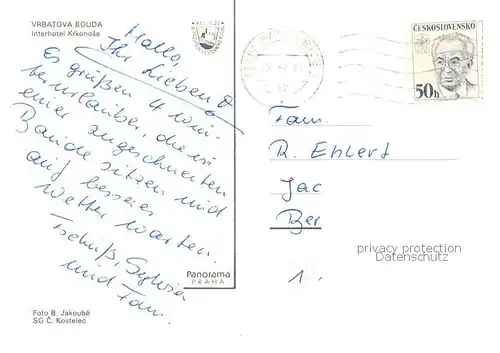 VRBATOVA BOUDA
Interhotel Krkonoše
Hallo,
Ihr Lieben
Es grüßen 4
urlauber, die in
einer angeschneiten
Baude sitzen und
auf besseres
Wetter warten.
Tschüß, Sylvia
und Fam.
Panorama
PRAHA
Foto B. Jakoubě
SG Č. Kostelec
ČESKOSLOVENSKO
50h
Fam.
R. Ehlert
Jac
Ber
1.
privacy protection
Datenschutz